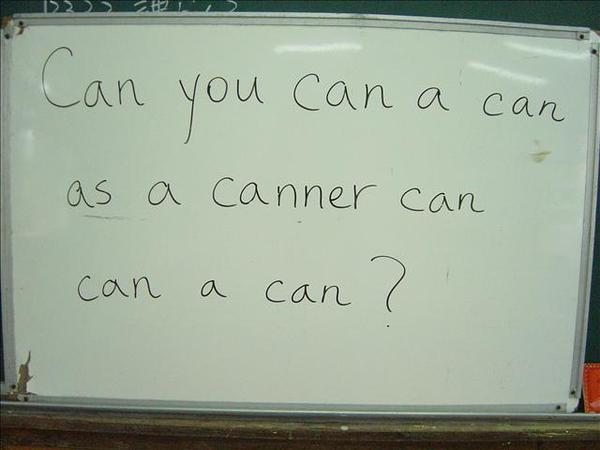 Can you can a can
as a canner can
can a can?